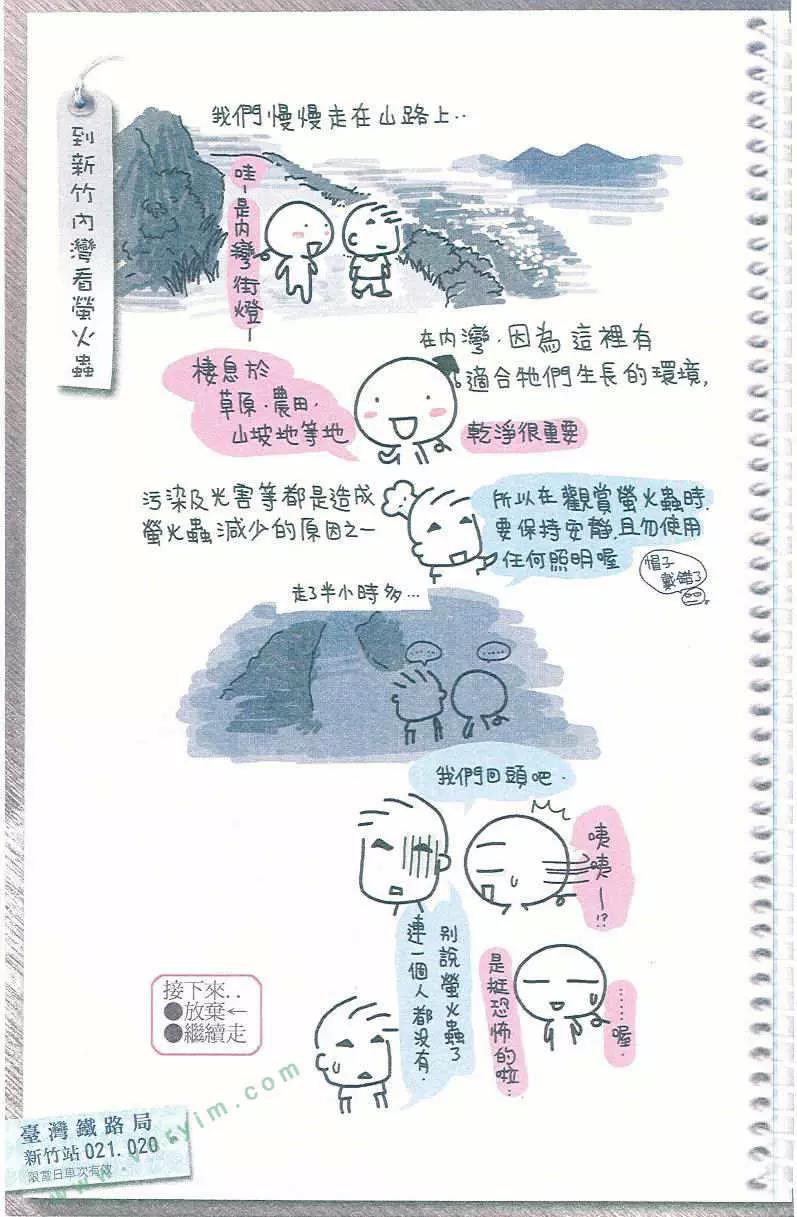 到新竹內灣看螢火蟲
我們慢慢走在山路上‥
哇~是內灣街燈—
在內灣，因為這裡有
適合牠們生長的環境，
棲息於
草原、農田、
山坡地等地
乾淨很重要
污染及光害等都是造成
螢火蟲減少的原因之一
所以在觀賞螢火蟲時，
要保持安靜，且勿使用
任何照明喔
帽子
戴錯了
走了半小時多…
……
……
我們回頭吧．
咦咦—!?
別說螢火蟲了
連一個人都沒有．
……喔．
是挺恐怖的啦…
接下來..
●放棄←
●繼續走
臺灣鐵路局
新竹站 021. 020
限當日車次有效